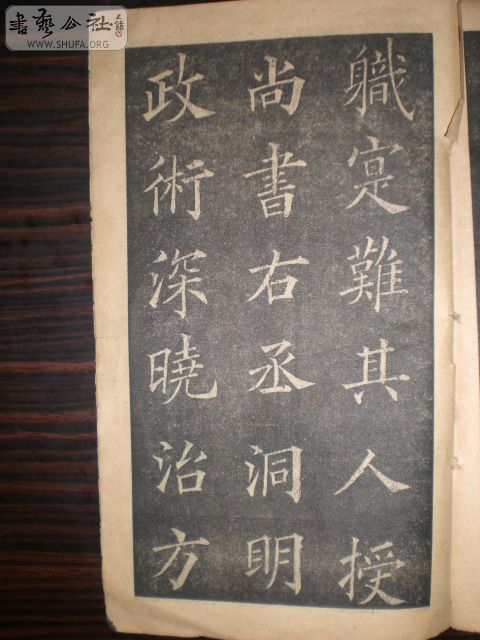 書藝公社
WWW.SHUFA.ORG
軄寔難其人授
尚書右丞洞明
政術深曉治方